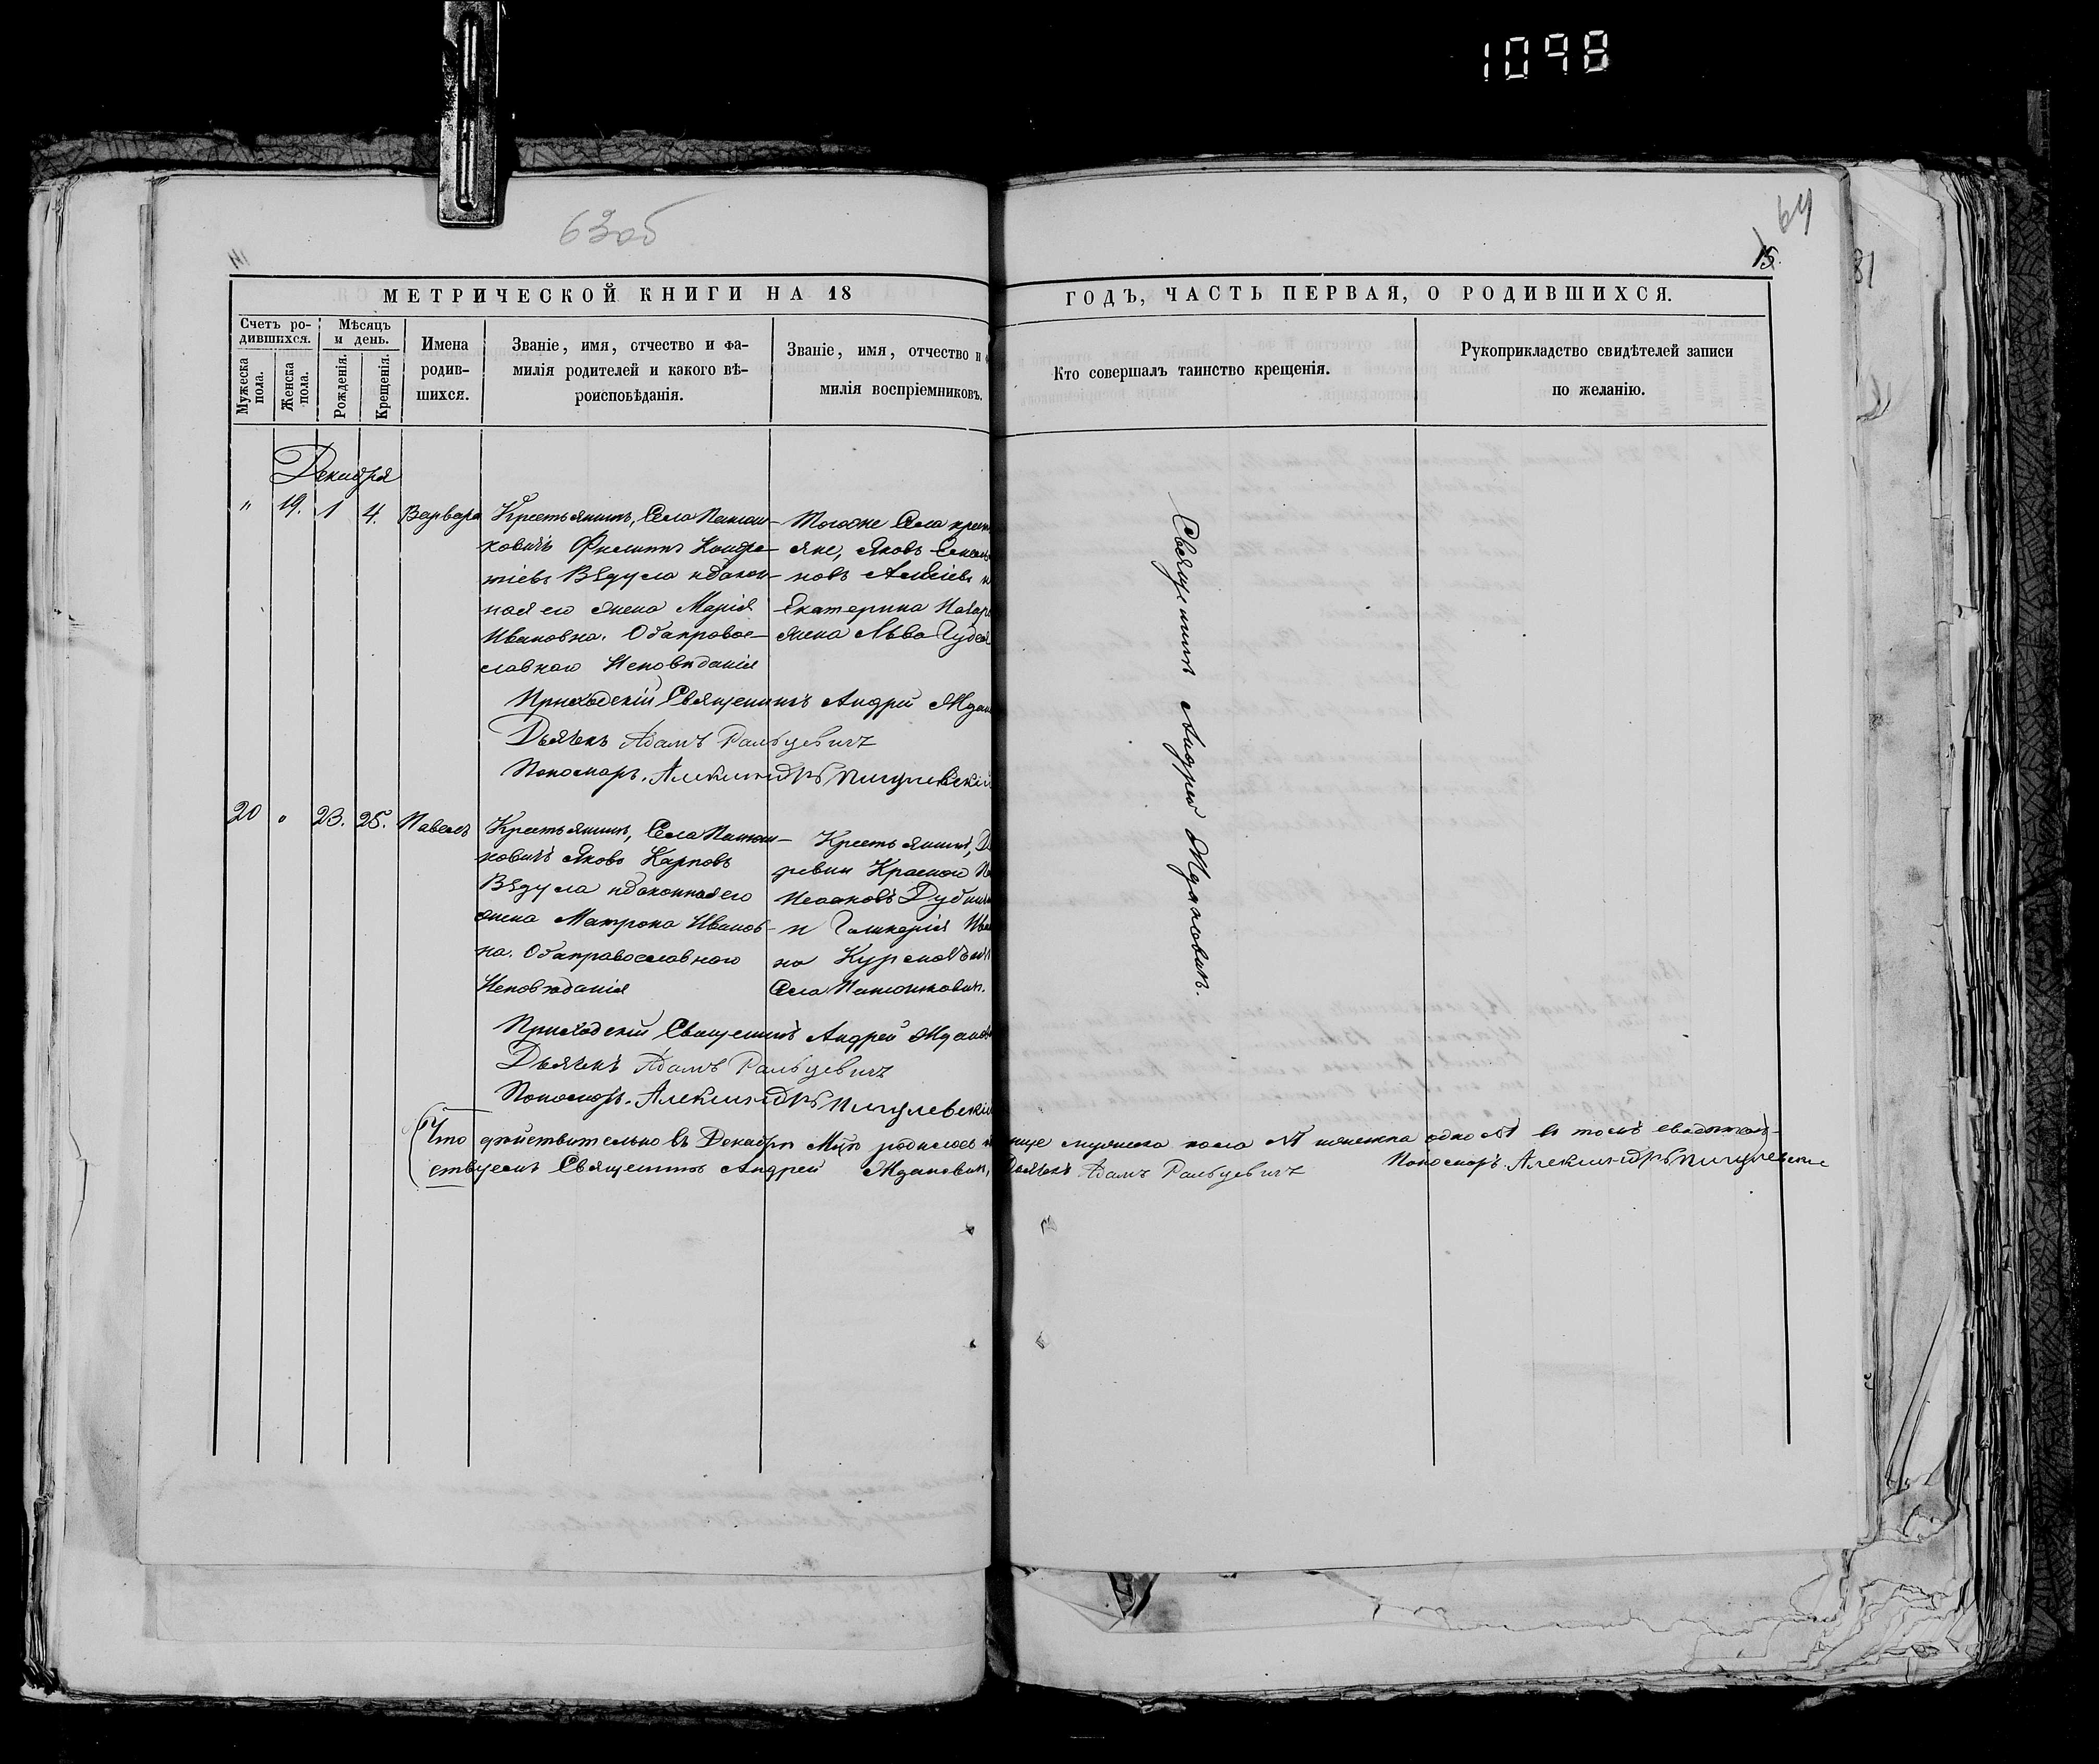 1098
63об
64
15.
81
МЕТРИЧЕСКОЙ КНИГИ НА 18
ГОДЪ, ЧАСТЬ ПЕРВАЯ, О РОДИВШИХСЯ.
Счетъ родившихся.
Мужеска пола.
Женска пола.
Мѣсяцъ и день.
Рожденія.
Крещенія.
Имена родившихся.
Званіе, имя, отчество и фамилія родителей и какого вѣроисповѣданія.
Званіе, имя, отчество и
милія воспріемниковъ.
Кто совершалъ таинство крещенія.
Рукоприкладство свидѣтелей записи по желанію.
Декабря
" 19. 1 4. Варвара
Крестьянинъ, Села
Филиппъ Кондра-
тіевъ Вѣдула и закон-
ная его жена Марія
Ивановна. Оба правос-
лавнаго Исповѣданія
Тогоже Села крест
яне, Яковъ
новъ
Екатерина Назар
жена Льва
Приходскій Священникъ Андрей Ждан
Дьячекъ Адамъ Ральцевичъ
Пономарь. Александръ
20 " 23. 25. Павелъ
Крестьянинъ, Села
Яковъ Карповъ
Вѣдула и законная его
жена Матрона Иванов-
на. Оба православнаго
Исповѣданія
Крестьянинъ, Де
ревни Красной
Исааковъ
и Гликерія Ива
на
Села
Приходскій Священникъ Андрей Жданов
Дьячекъ Адамъ Ральцевичъ
Пономарь. Александръ
Священникъ Андрей Ждановичъ.
Что дѣйствительно въ Декабрѣ М-цѣ родилось мужеска пола №1 женска одно №1 въ томъ свидѣтель-
ствуемъ Священникъ Андрей Ждановичъ, Дьячекъ Адамъ Ральцевичъ Пономарь. Александръ